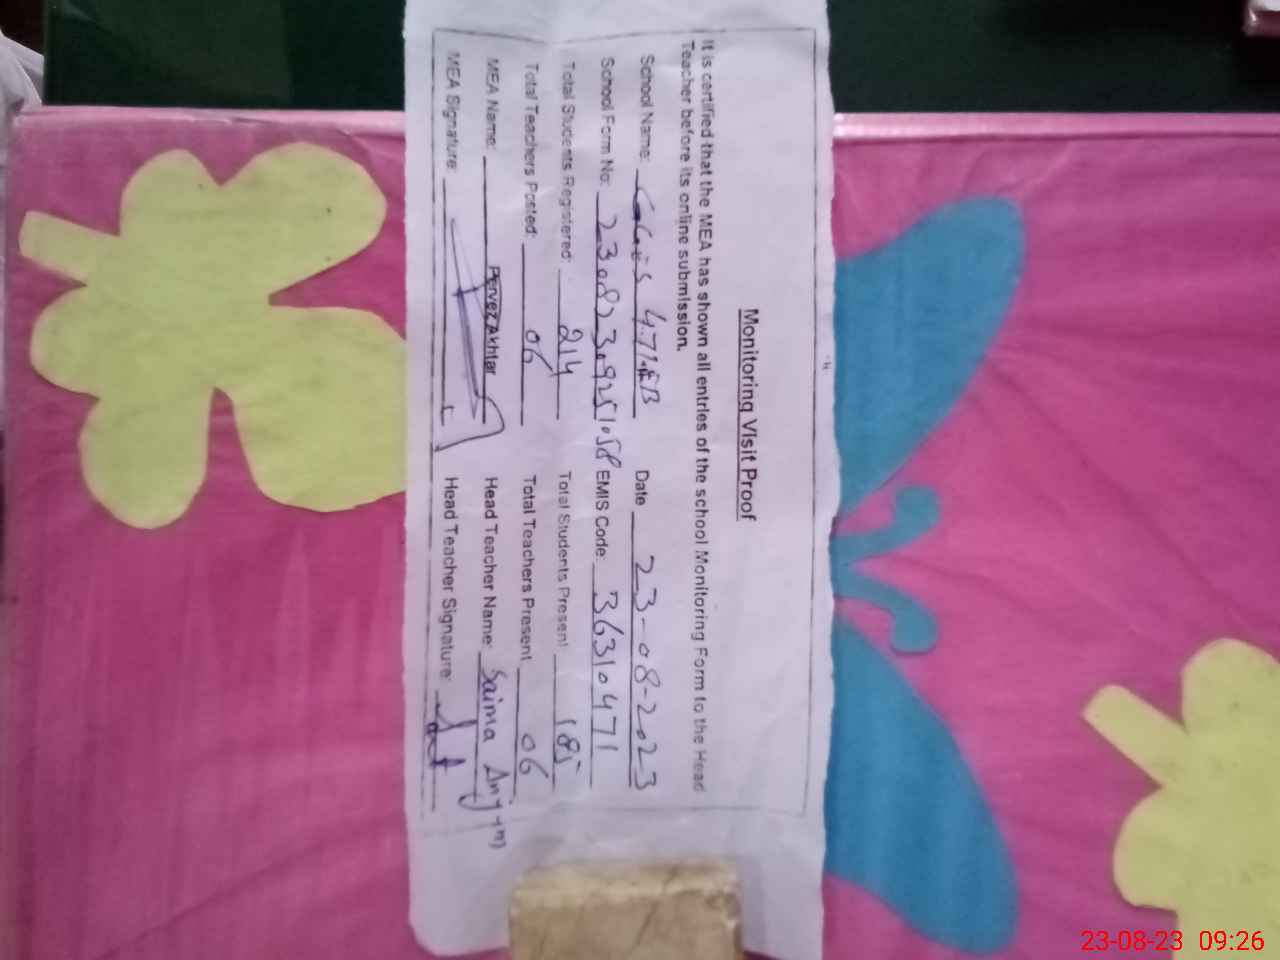 Monitoring Visit Proof
It is certified that the MEA has shown all entries of the school Monitoring Form to the Head
Teacher before its online submission.
School Name: 471.EB Date 23-08-2023
School Form No: 23082309251058 EMIS Code: 36310471
Total Students Registered: 214 Total Students Present 185
Total Teachers Posted: 06 Total Teachers Present 06
MEA Name: Pervez Akhtar Head Teacher Name: Saima Anjum
MEA Signature: Head Teacher Signature:
23-08-23 09:26